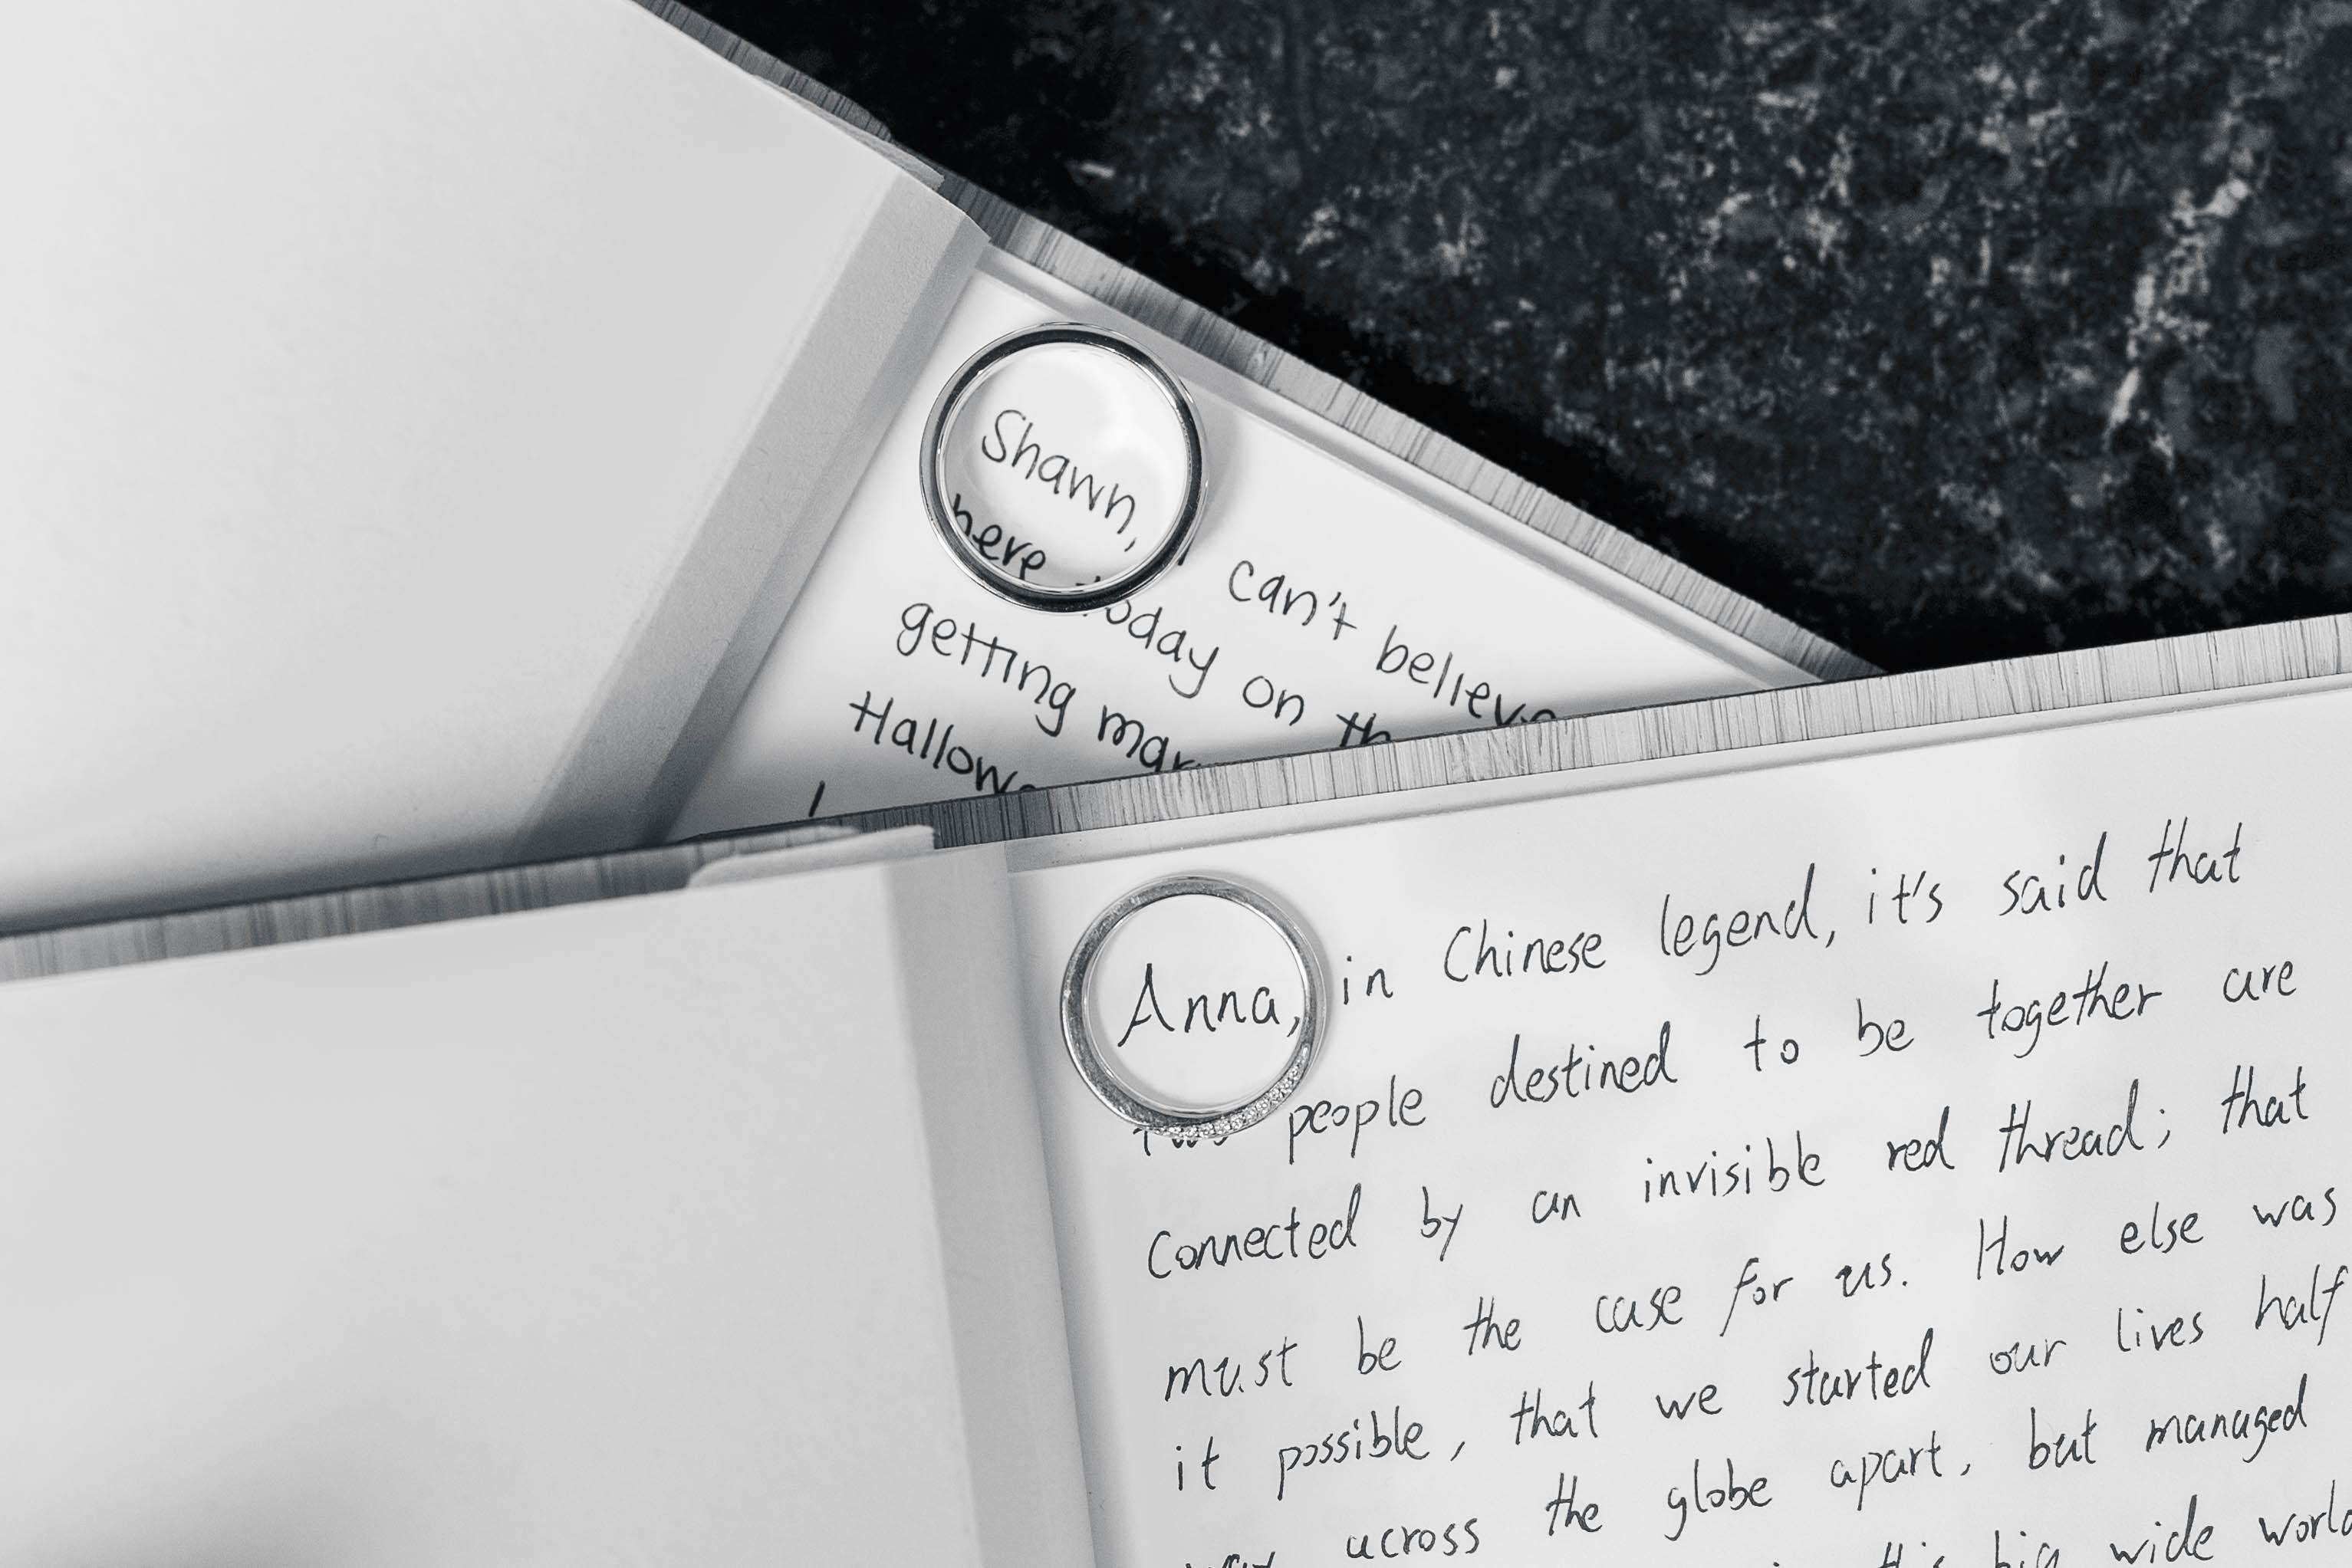 Shawn, I can't believe
here today on
getting
Anna, in Chinese legend, it's said that
two people destined to be together are
connected by an invisible red thread; that
must be the case for us. How else was
it possible, that we started our lives half
way across the globe apart, but managed
this big wide world